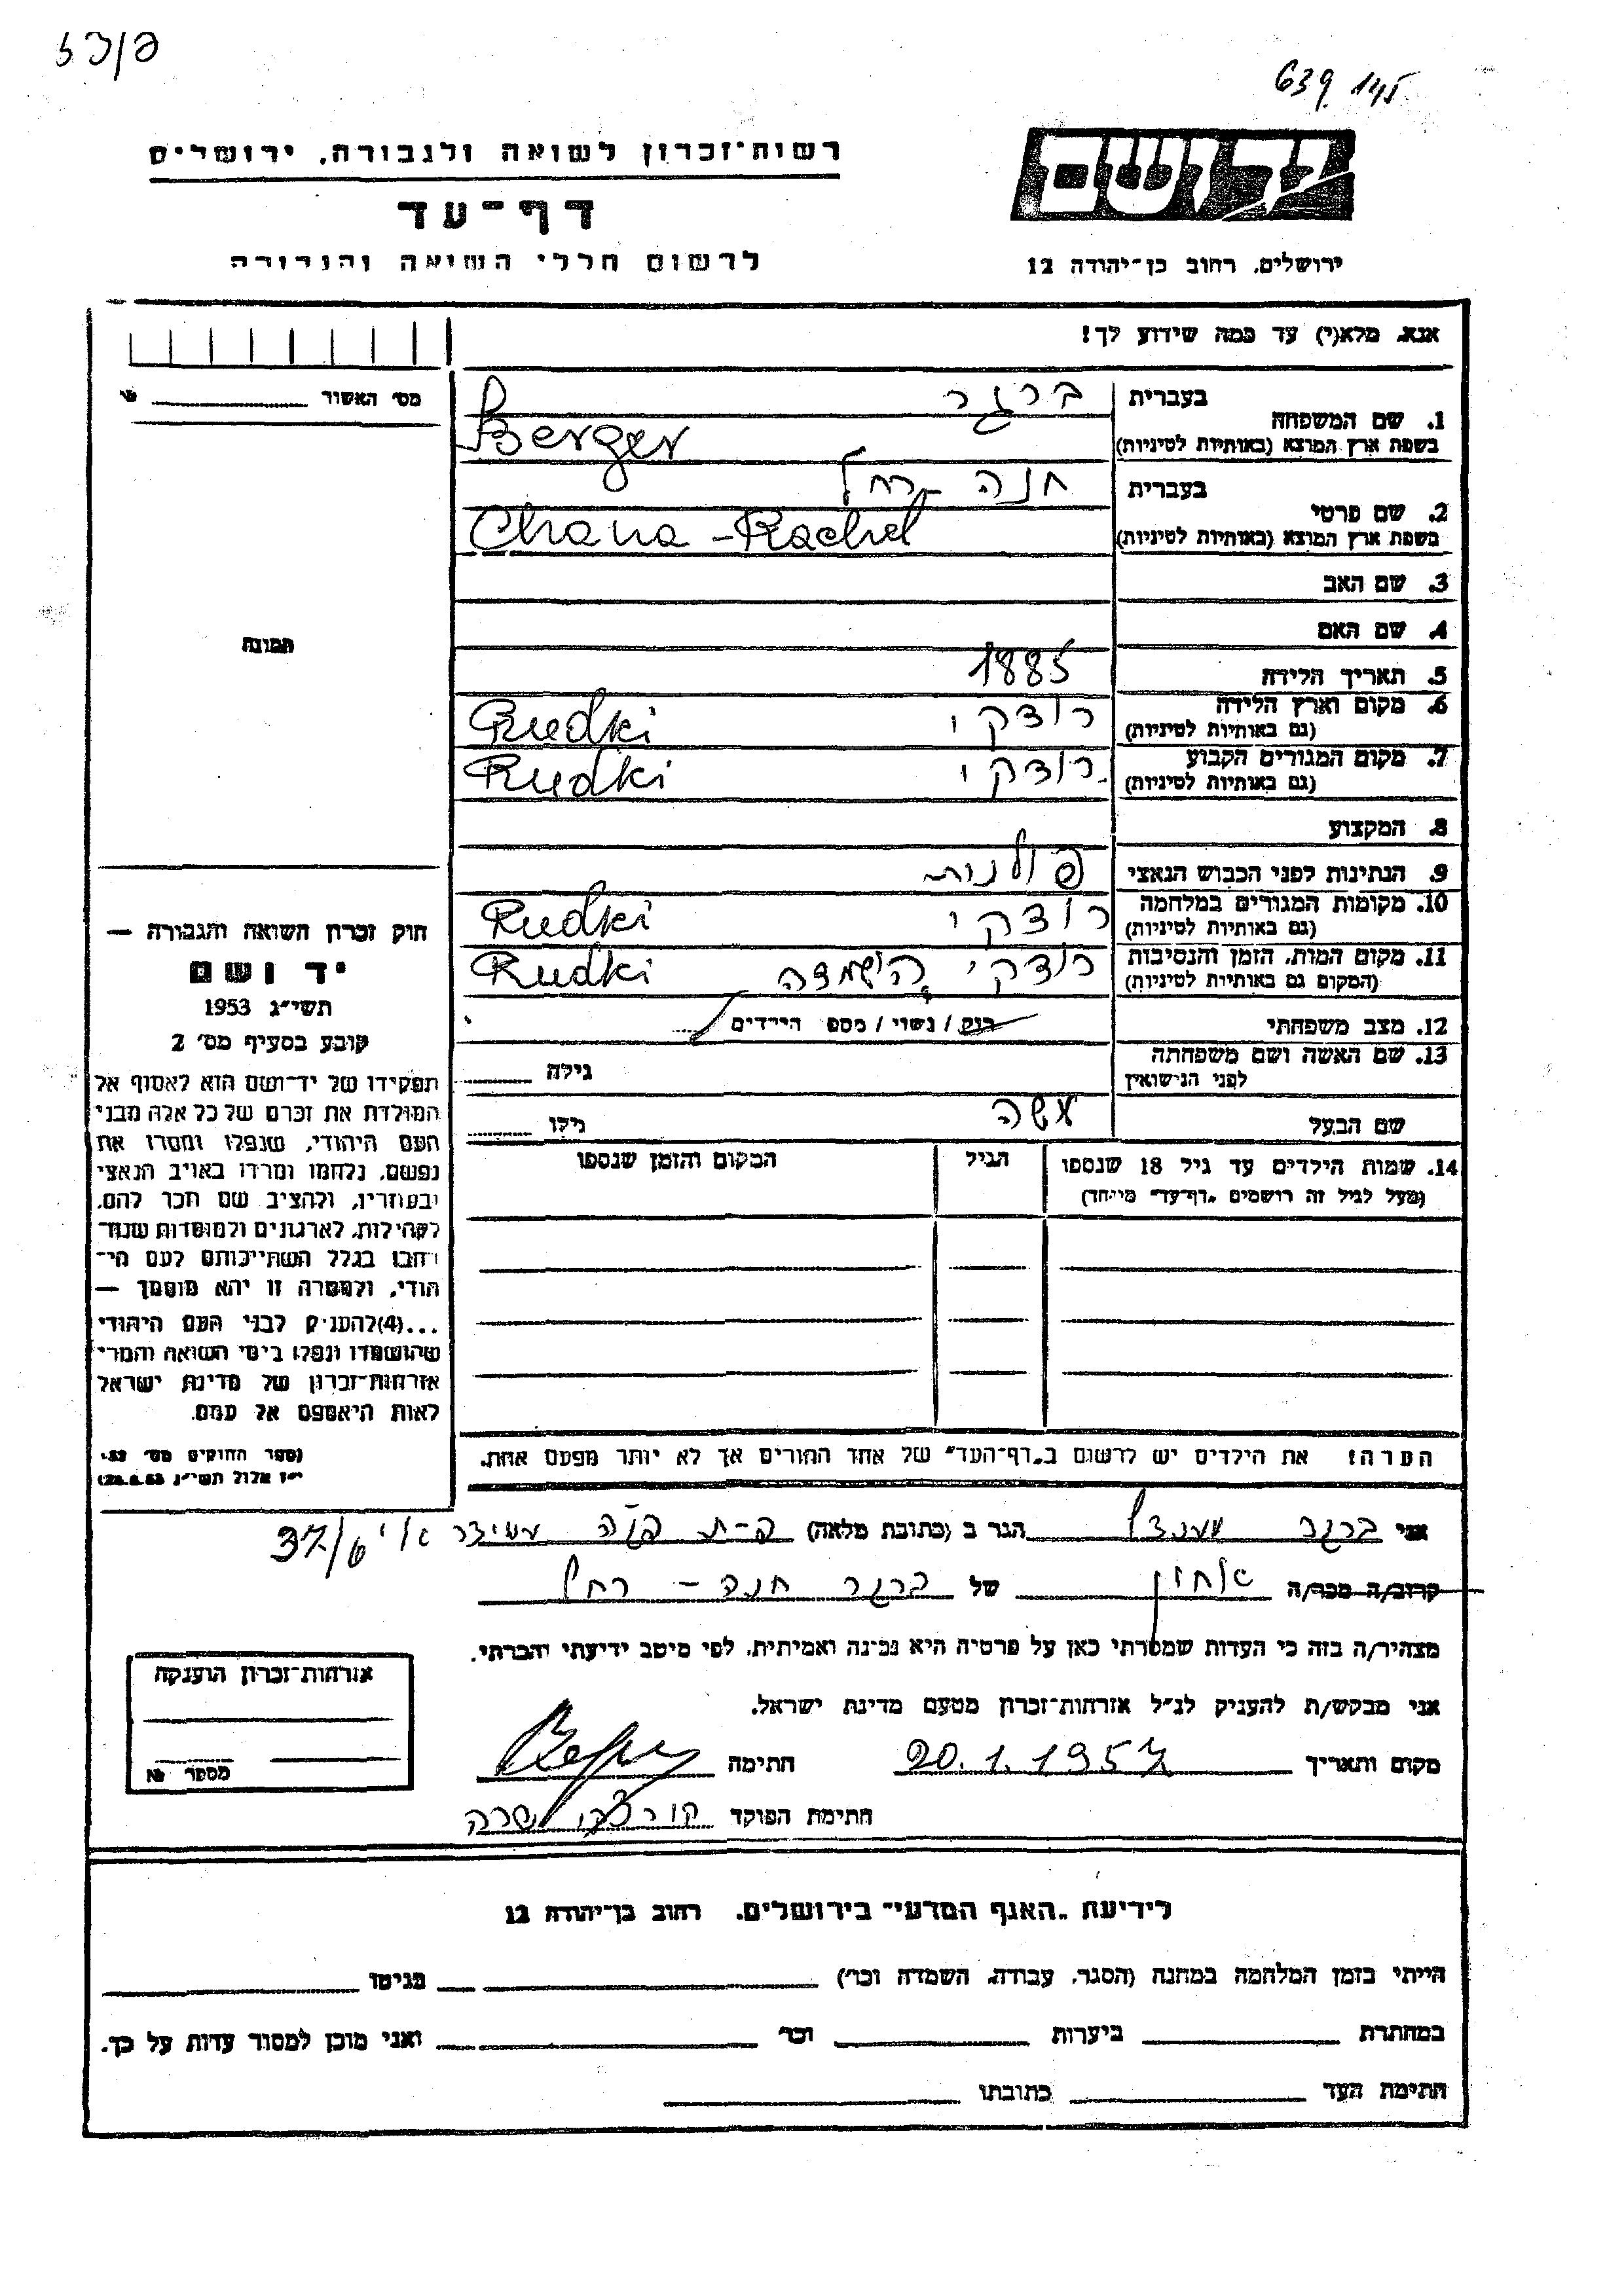 639 145
רשות־זכרון לשואה ולגבורה, ירושלים
דף־עד
לרשום חללי השואה והגבורה
יד ושם
ירושלים, רחוב בן־יהודה 12
אנא, מלא(י) עד כמה שידוע לך!
מס' האשור
תמונה
1. שם המשפחה
בעברית ברגר
בשפת ארץ המוצא (באותיות לטיניות) Berger
2. שם פרטי
בעברית חנה - רחל
בשפת ארץ המוצא (באותיות לטיניות) Chana - Rachel
3. שם האב
4. שם האם
5. תאריך הלידה 1885
6. מקום וארץ הלידה רודקי Rudki
(גם באותיות לטיניות)
7. מקום המגורים הקבוע רודקי Rudki
(גם באותיות לטיניות)
8. המקצוע
9. הנתינות לפני הכבוש הנאצי פולנית
10. מקומות המגורים במלחמה רודקי Rudki
(גם באותיות לטיניות)
11. מקום המות, הזמן והנסיבות רודקי הושמדה Rudki
(המקום גם באותיות לטיניות)
12. מצב משפחתי רוק / נשוי / מספ הילדים
13. שם האשה ושם משפחתה גילה
לפני הנישואין
שם הבעל משה גילו
14. שמות הילדים עד גיל 18 שנספו הגיל המקום והזמן שנספו
(מעל לגיל זה רושמים "דף־עד" מיוחד)
הערה: את הילדים יש לרשום ב"דף־העד" של אחד ההורים אך לא יותר מפעם אחת.
חוק זכרון השואה והגבורה —
יד ושם
תשי"ג 1953
קובע בסעיף מס' 2
תפקידו של יד־ושם הוא לאסוף אל
המולדת את זכרם של כל אלה מבני
העם היהודי, שנפלו ומסרו את
נפשם, נלחמו ומרדו באויב הנאצי
ובעוזריו, ולהציב שם וזכר להם,
לקהילות, לארגונים ולמוסדות שנח־
רבו בגלל השתייכותם לעם הי־
הודי, ולמטרה זו יהא מוסמך —
...(4)להעניק לבני העם היהודי
שהושמדו ונפלו בימי השואה והמרי
אזרחות־זכרון של מדינת ישראל
לאות היאספם אל עמם.
(ספר החוקים מס' 132
י"ז אלול תשי"ג 28.8.53)
אני ברגר מנדל הגר ב (כתובת מלאה) פ-ת 37/6
קרוב/ה מכר/ה של ברגר חנה - רחל
מצהיר/ה בזה כי העדות שמסרתי כאן על פרטיה היא נכונה ואמיתית, לפי מיטב ידיעתי והכרתי.
אני מבקש/ת להעניק לנ"ל אזרחות־זכרון מטעם מדינת ישראל.
מקום ותאריך 20.1.1957 חתימה
חתימת הפוקד שרה
אזרחות־זכרון הוענקה
מספר №
לידיעת "האגף המדעי" בירושלים, רחוב בן־יהודה 12
הייתי בזמן המלחמה במחנה (הסגר, עבודה, השמדה וכו') בגיטו
במחתרת ביערות וכו' ואני מוכן למסור עדות על כך.
חתימת העד כתובתו